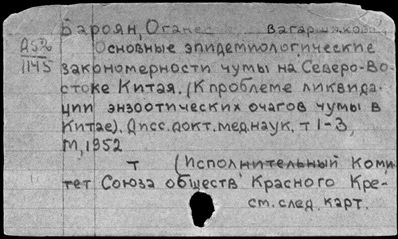 Бароян, Оганес Вагаршакович
Основные эпидемиологические
закономерности чумы на Северо-Во-
стоке Китая. (К проблеме ликвида-
ции энзоотических очагов чумы в
Китае). Дисс. докт. мед. наук, т 1-3,
М, 1952
т (Исполнительный Коми
тет Союза обществ Красного Кре-
ст. след. карт.
1145